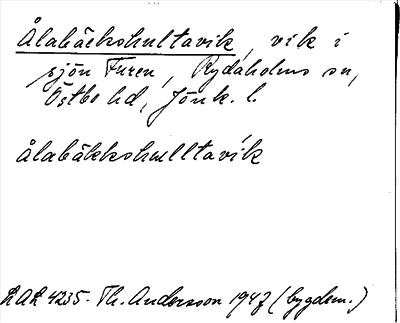 Ålabäckshultavik, vik i
sjön Furen, Rydaholms sn,
Östbo hd, Jönk. l.
ålabäkkshulltavík
LAL 4235. Th. Andersson 1947 (bygdem.)